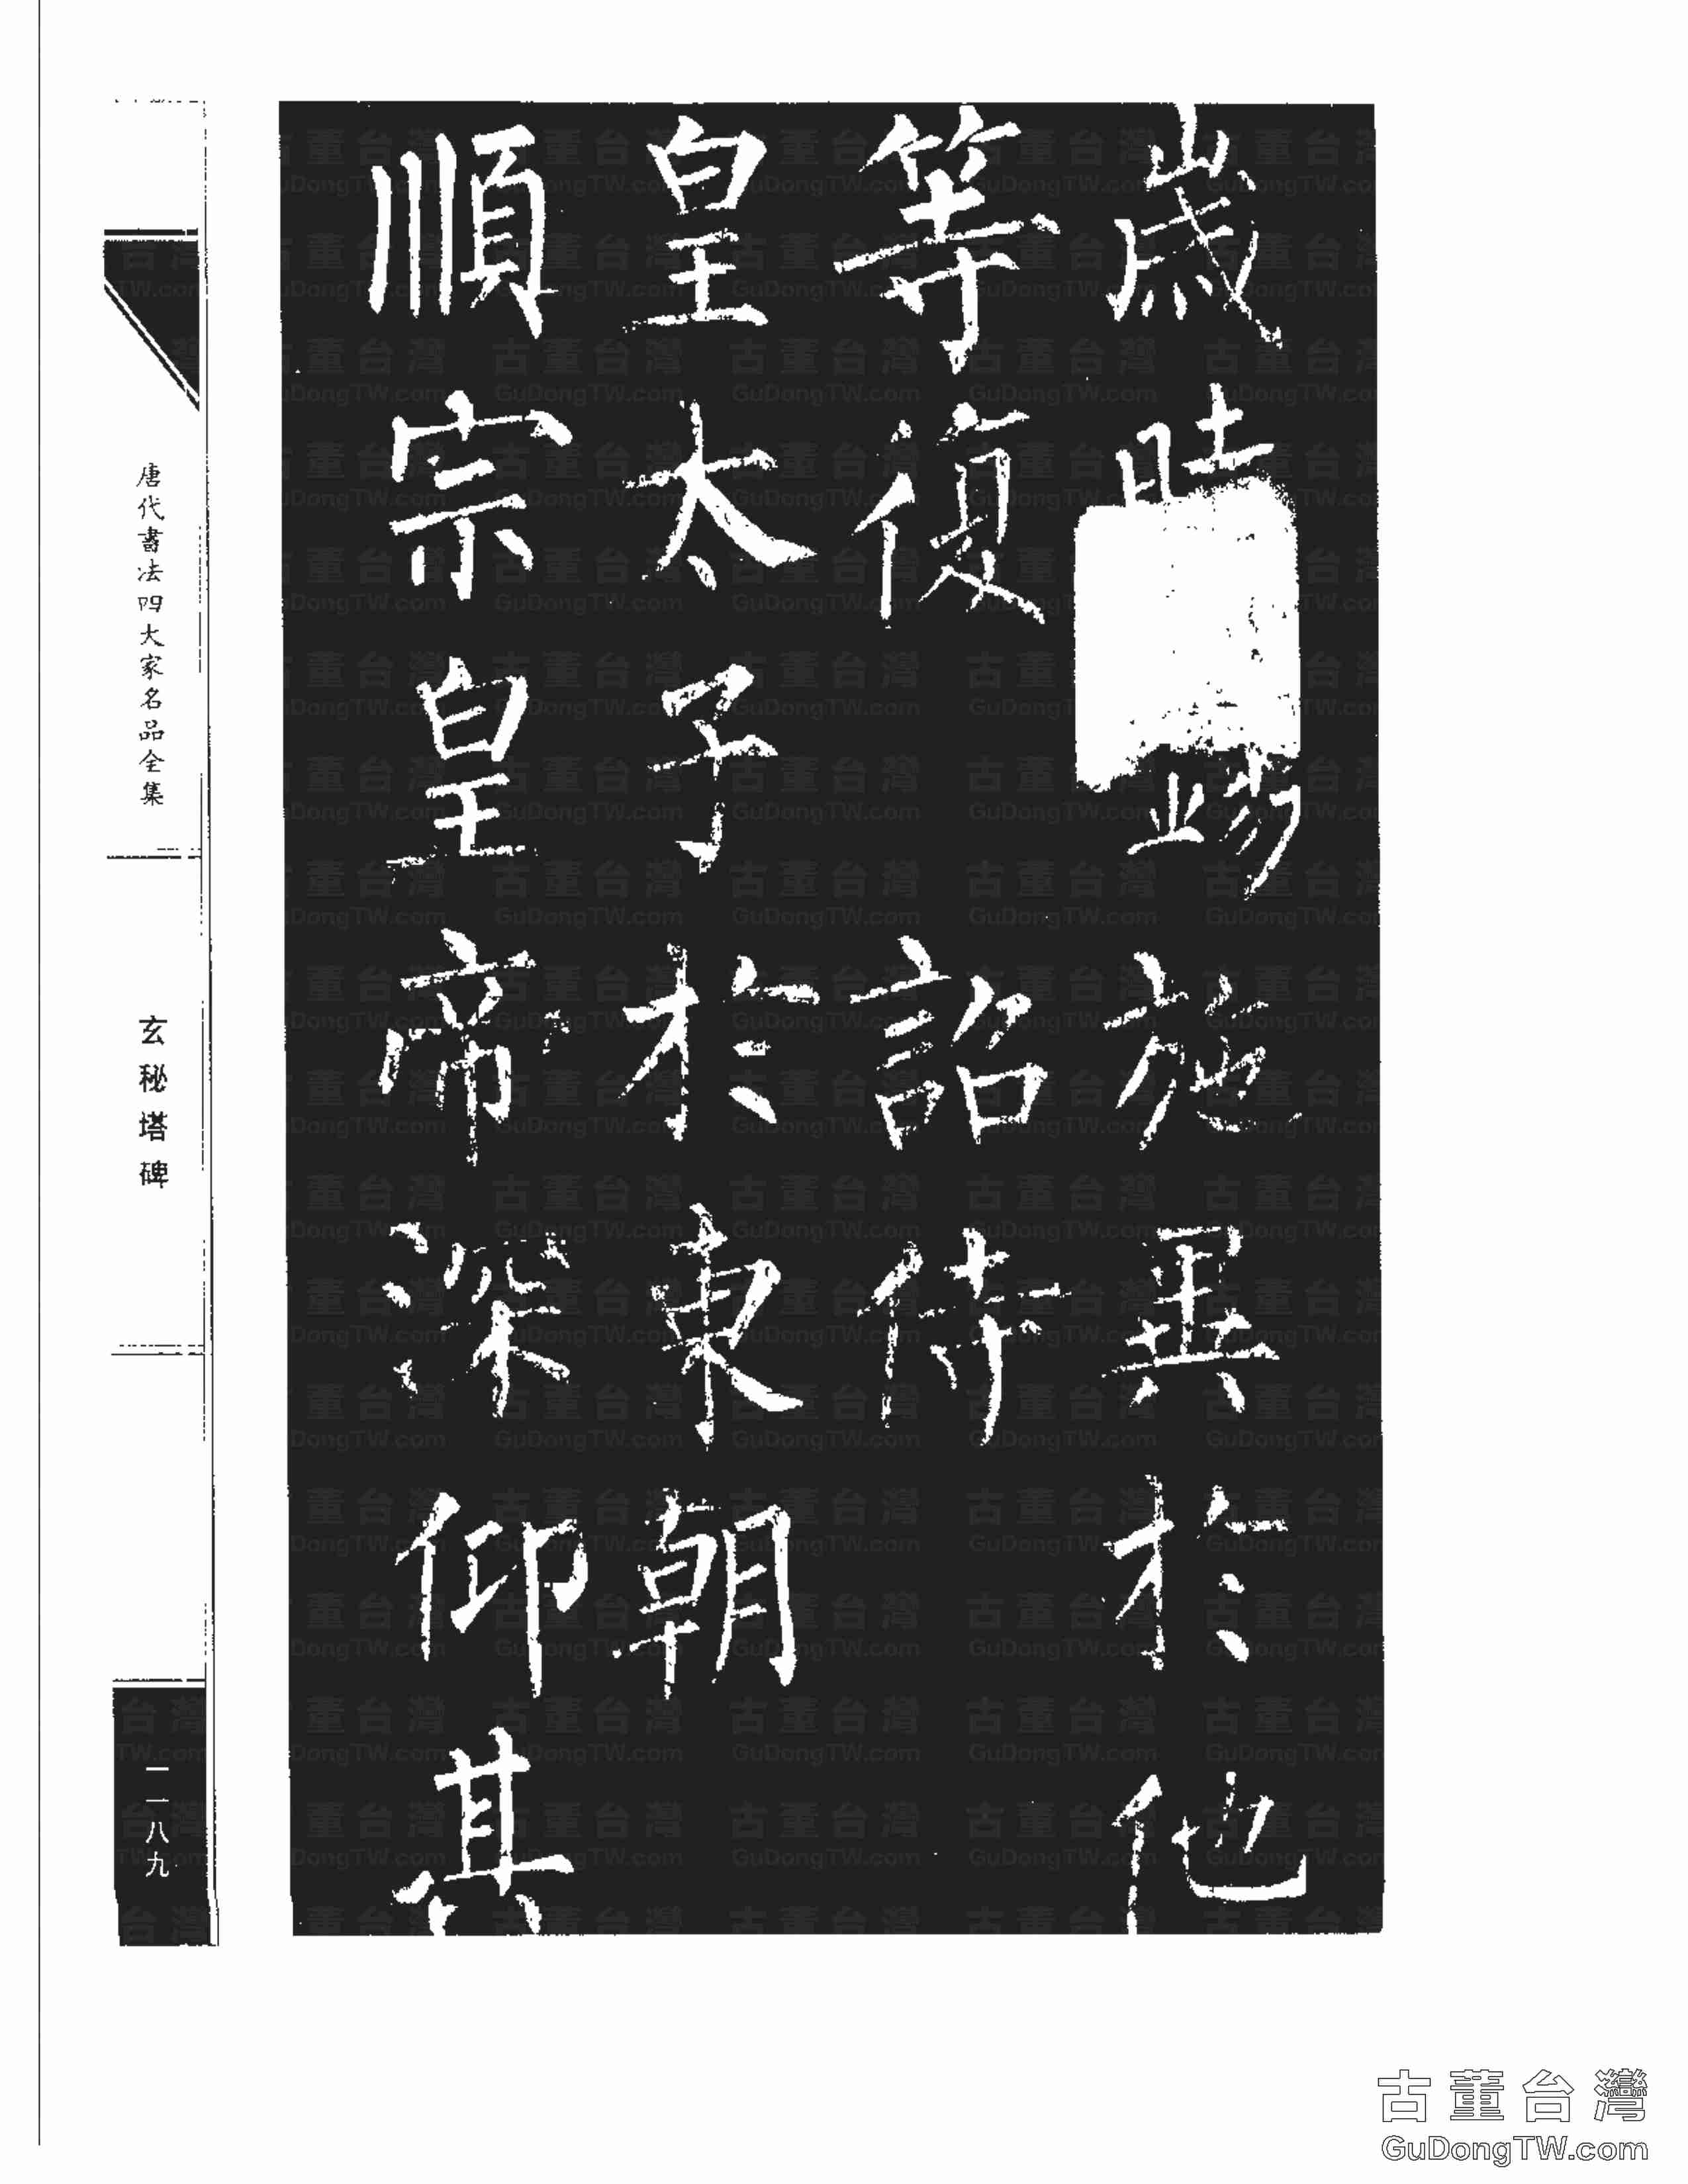 歲時錫施異於他
等復詔侍
皇太子於東朝
順宗皇帝深仰其
唐代書法四大家名品全集
玄秘塔碑
一一八九
古董台灣
GuDongTW.com